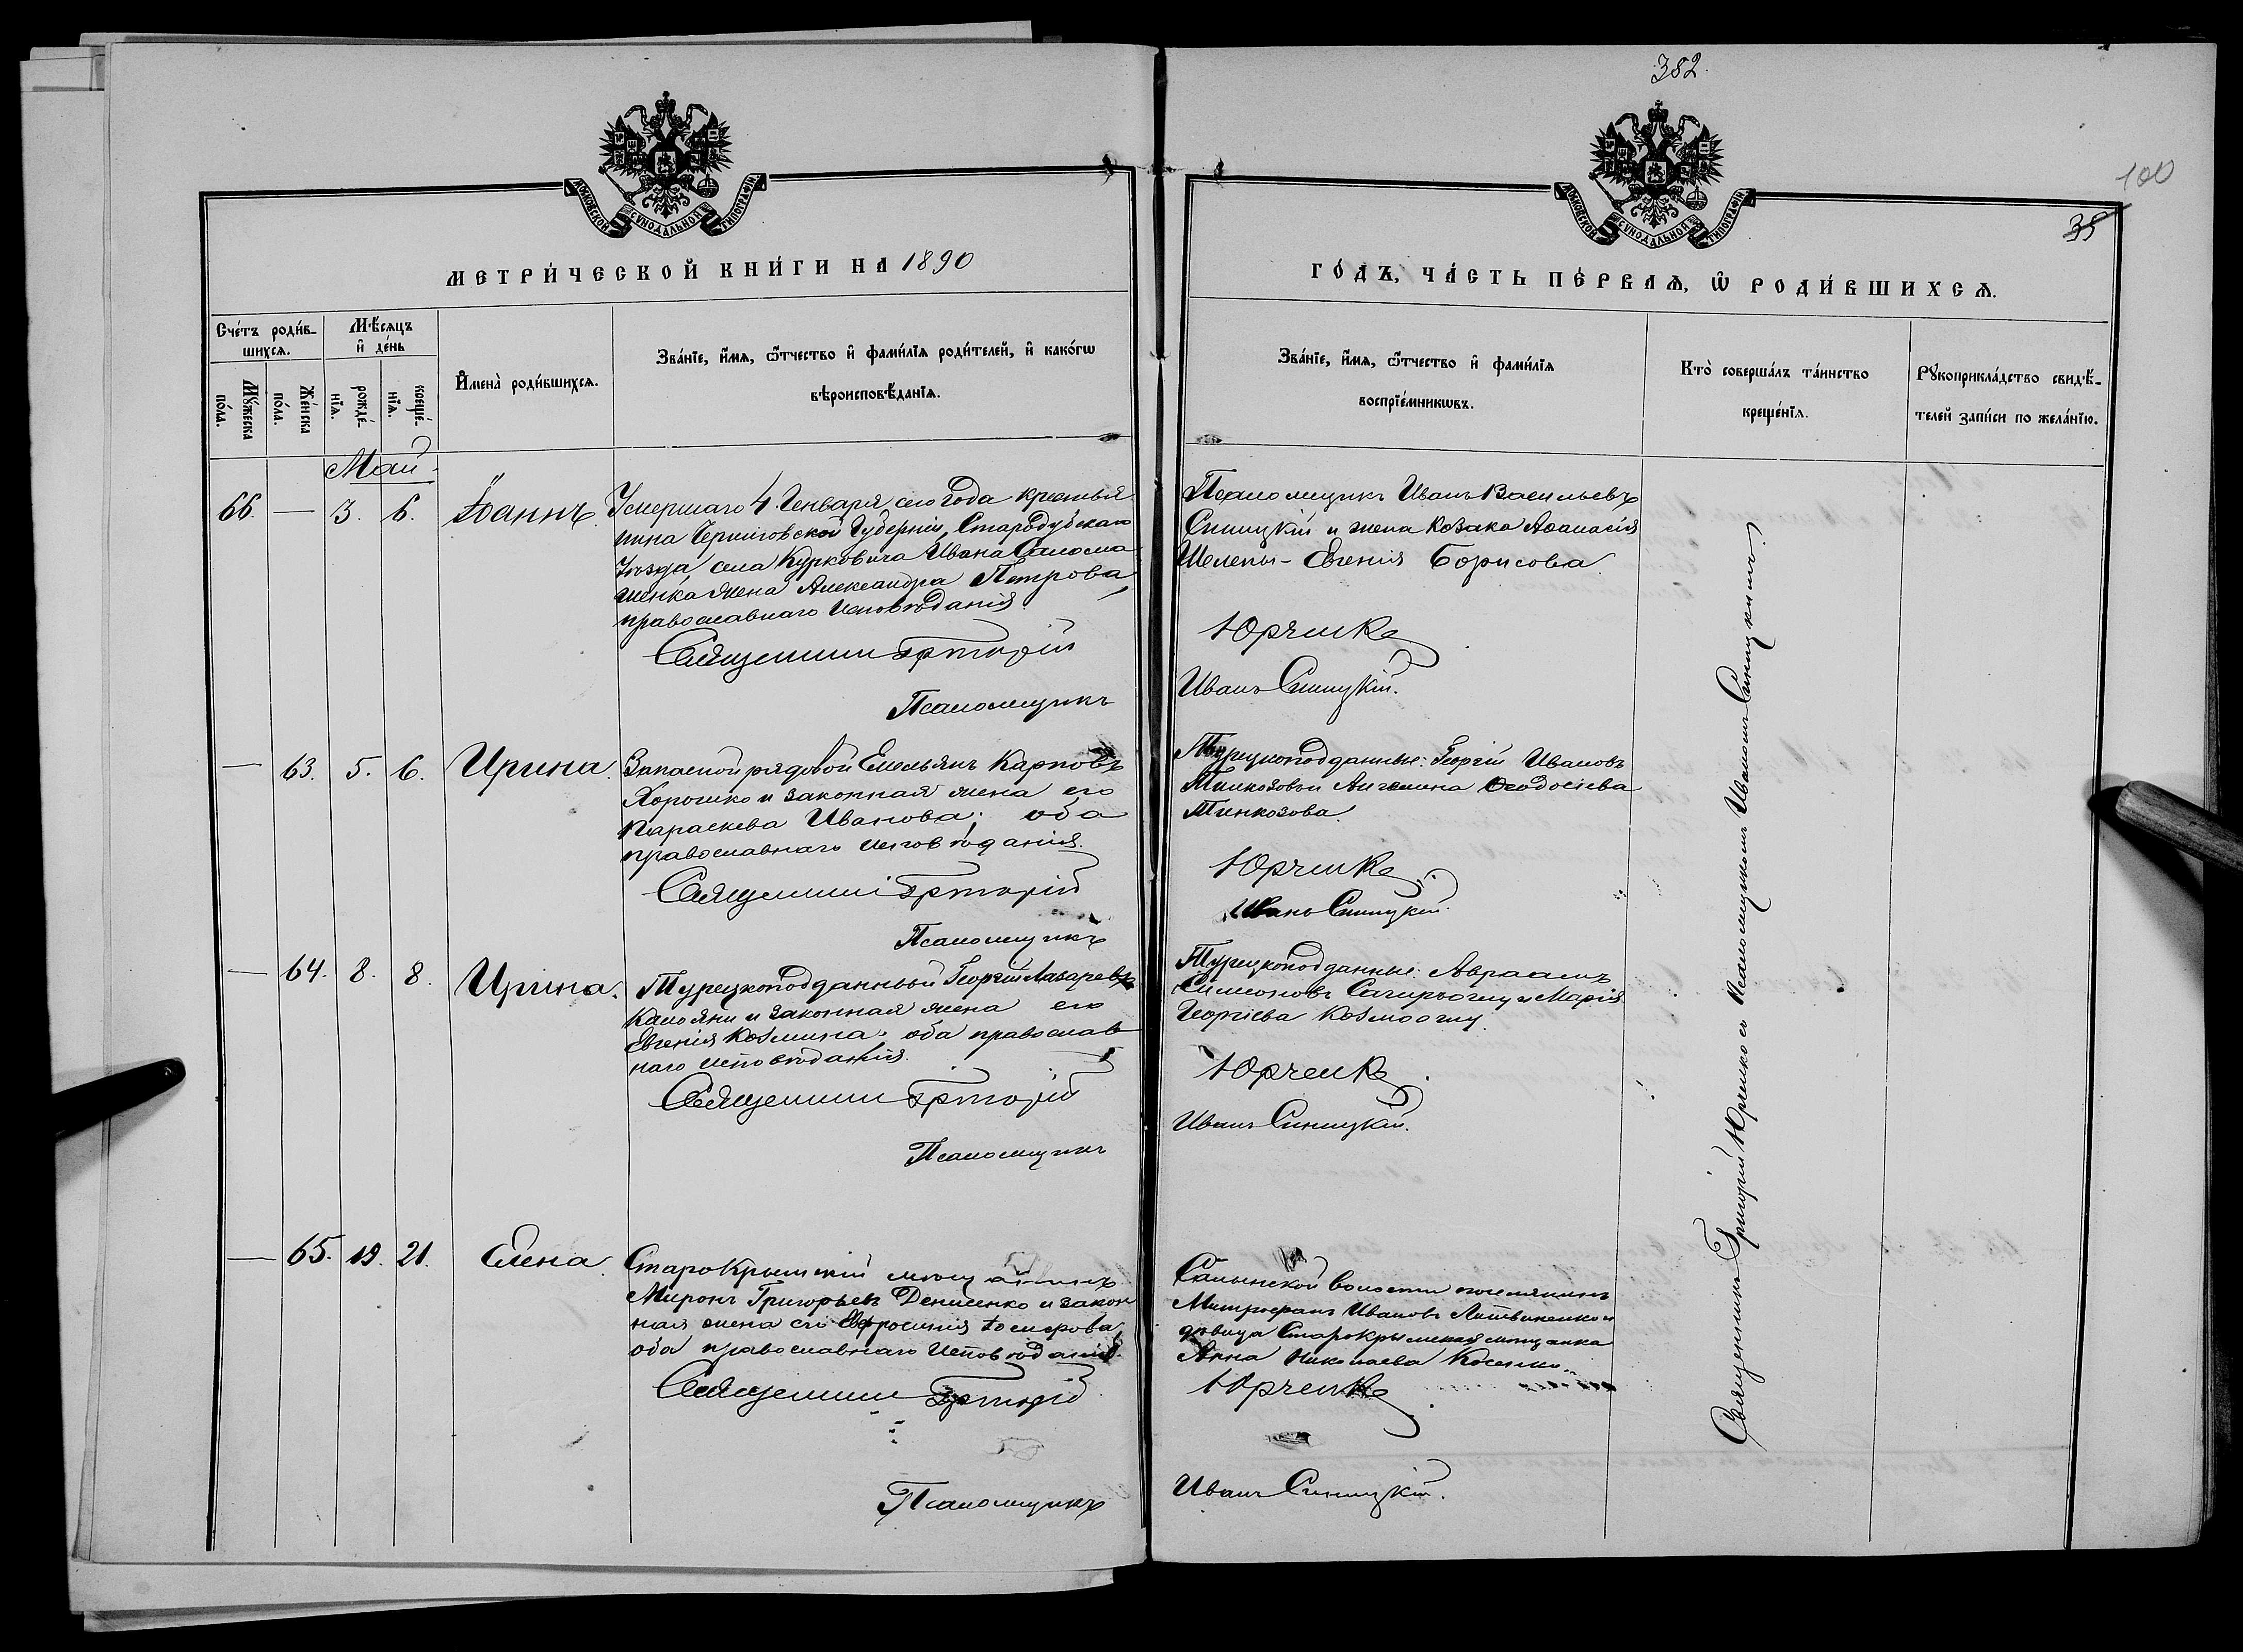 382.
100
35
МОСКОВСКОЙ СѴНОДАЛЬНОЙ ТИПОГРАФІИ
МОСКОВСКОЙ СѴНОДАЛЬНОЙ ТИПОГРАФІИ
МЕТРИ́ЧЕСКОЙ КНИ́ГИ НА 1890
ГО́ДЪ, ЧА́СТЬ ПЕ́РВАѦ, Ѡ҆ РОДИ́ВШИХСѦ.
Сче́тъ роди́в-
шихсѧ.
Мѣ́сѧцъ
и҆ де́нь
Мꙋ́жеска
по́ла.
Же́нска
по́ла.
рожде́-
нїѧ.
креще́-
нїѧ.
И҆мена̀ роди́вшихсѧ.
Зва́нїе, и҆́мѧ, ѻ҆́тчество и҆ фами́лїѧ роди́телей, и҆ како́гѡ
вѣроисповѣ́данїѧ.
Зва́нїе, и҆́мѧ, ѻ҆́тчество и҆ фами́лїѧ
воспрїе́мникѡвъ.
Кто̀ соверша́лъ та́инство
креще́нїѧ.
Рꙋкоприкла́дство свидѣ́-
телей за́писи по жела́нїю.
Май.
66. — 3. 6. Іоаннъ.
Умершаго 4. Генваря сего года крестья
нина Черниговской Губерніи, Стародубскаго
Уѣзда, села Курковича Ивана Саломаи
шенка жена Александра Петрова,
православнаго исповѣданія.
Священникъ Григорій
Псаломщикъ
Псаломщикъ Иванъ Васильевъ
Синицкій и жена Козака Аѳанасія
Шелепы - Евгенія Борисова.
Юрченко
Иванъ Синицкій.
— 63. 5. 6. Ирина.
Запасной рядовой Емельянъ Карповъ
Хорошко и законная жена его
Параскева Иванова; оба
православнаго исповѣданія.
Священникъ Григорій
Псаломщикъ
Турецкоподданные: Георгій Ивановъ
Ѳеодосіева
Тинкозова.
Юрченко
Иванъ Синицкій.
— 64. 8. 8. Ирина.
Турецкоподданный Георгій Лазаревъ
Калояни и законная жена его
Евгенія Козмина, оба православ
наго исповѣданія.
Священникъ Григорій
Псаломщикъ
Турецкоподданные: Авраамъ
Симеоновъ и Марія
Георгіева Козмооглу.
Юрченко
Иванъ Синицкій.
— 65. 19. 21. Елена.
Старокрымскій мѣщанинъ
Миронъ Григорьевъ Денисенко и закон
ная жена его Евфросинія Іосифова,
оба православнаго исповѣданія.
Священникъ Григорій
Псаломщикъ
волости поселянинъ
Митрофанъ Ивановъ Литвиненко и
дѣвица Старокрымская мѣщанка
Анна Николаева Косенко.
Юрченко
Иванъ Синицкій.
Священникъ Григорій Юрченко съ Псаломщикомъ Иваномъ Синицкимъ.